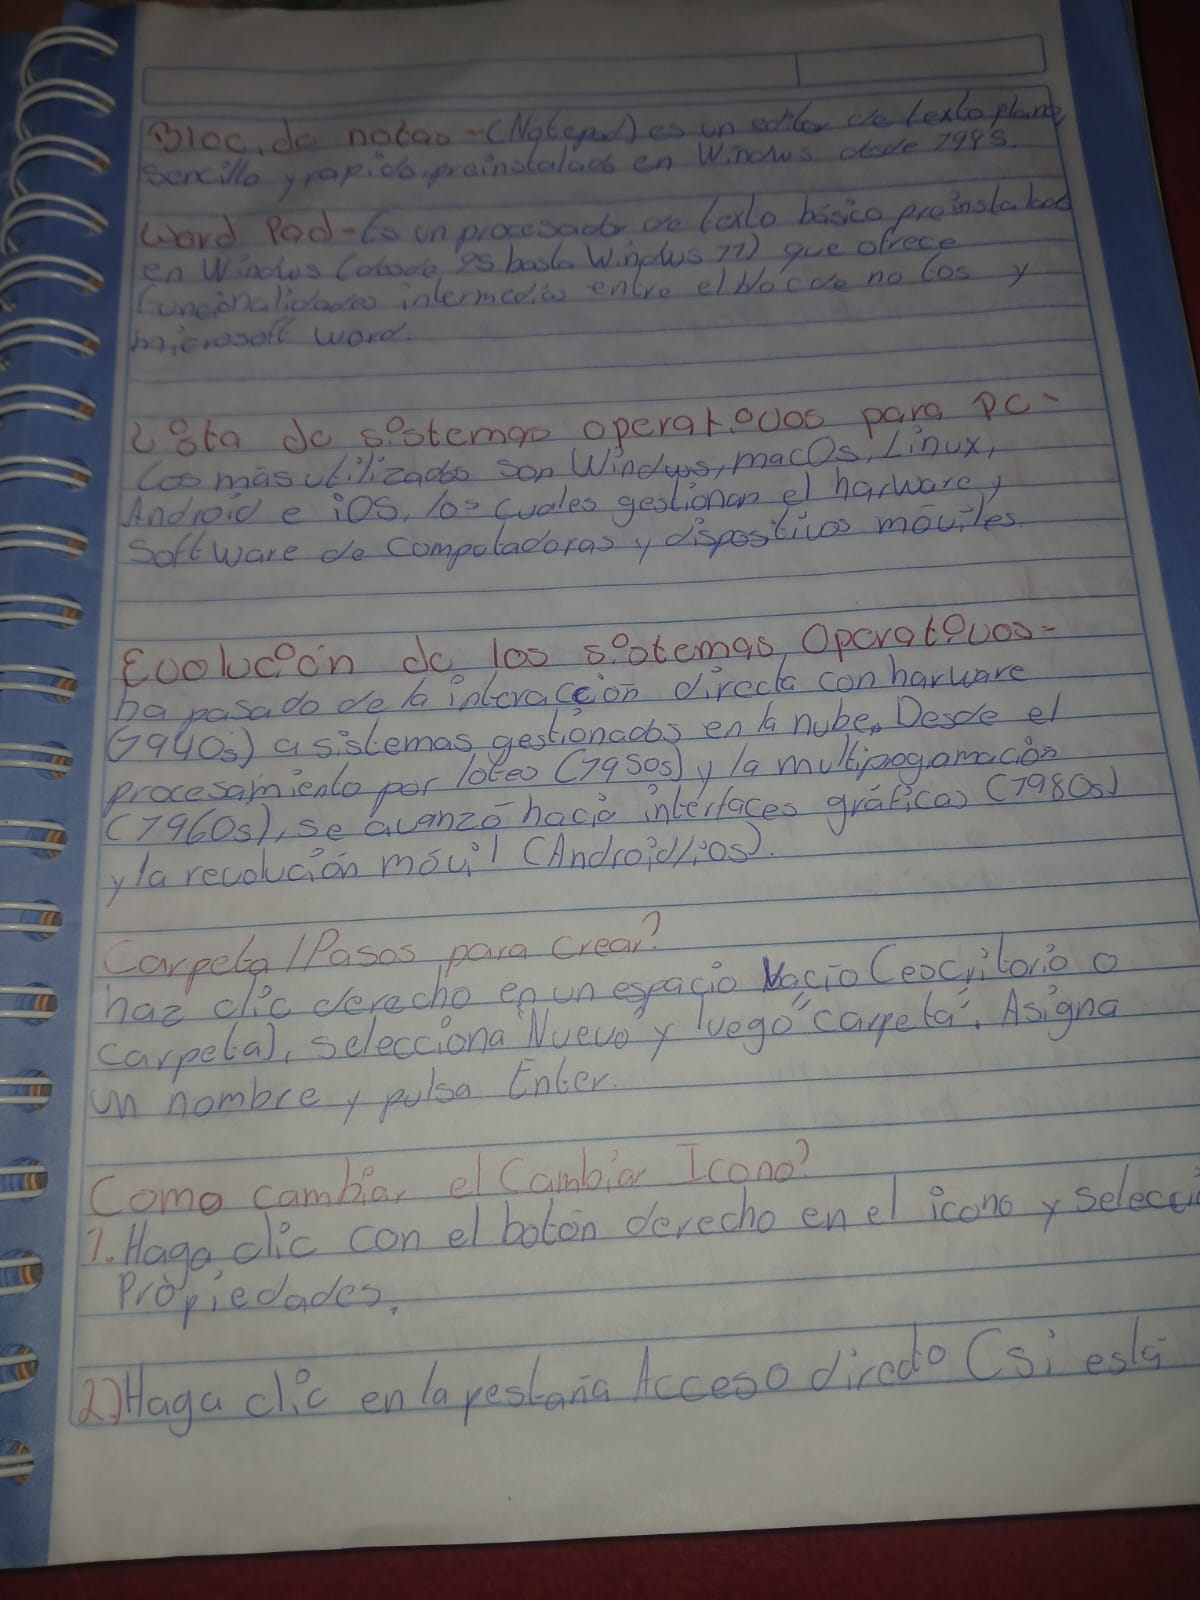 Bloc de notas - (Notepad) es un editor de texto plano,
sencillo y rapido preinstalado en Windws desde 1985.
Word Pad - Es un procesador de texto básico preinstalado
en Windws (desde 95 hasta Windws 11) que ofrece
funcionalidades intermedias entre el bloc de notas y
microsoft word.
Lista de sistemas operativos para PC -
Los más utilizados son Windws, macOs, Linux,
Android e iOS, los cuales gestionan el harware y
software de computadoras y dispositivos móviles.
Evolución de los sistemas Operativos -
ha pasado de la interacción directa con harware
(1940s) a sistemas gestionados en la nube. Desde el
procesamiento por lotes (1950s) y la multipogamación
(1960s), se avanzó hacia interfaces gráficas (1980s)
y la revolución móvil (Android/ios).
Carpeta / Pasos para crear?
haz clic derecho en un espacio vacío (escritorio o
carpeta), selecciona "Nuevo" y luego "carpeta". Asigna
un nombre y pulsa Enter.
Como cambiar el Cambiar Icono?
1. Haga clic con el botón derecho en el icono y selecci
Propiedades.
2) Haga clic en la pestaña Acceso directo (si está